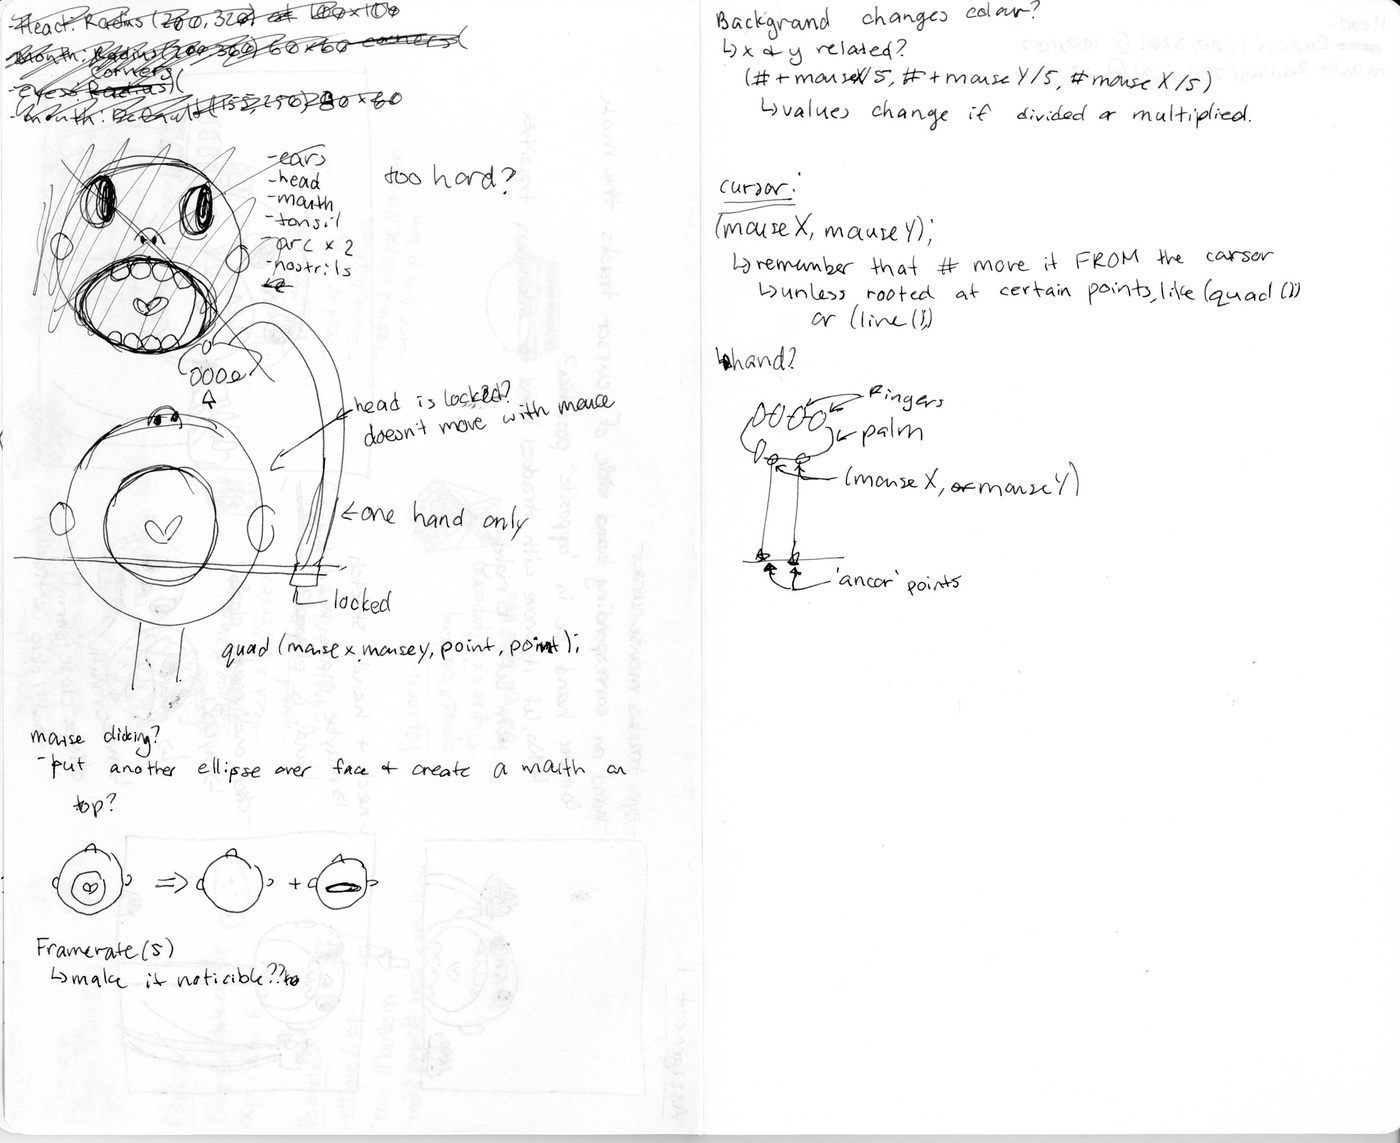 -Head: Radius (200, 320) at 100x100
Mouth: Radius (200 360) 60x60 corners (
corners
-eyes: Radius (
-mouth: Default (155, 250) 80x60
-ears
-head
-mouth
-tonsil
-arc x 2
-nostrils
too hard?
head is locked?
doesn't move with mouce
one hand only
locked
quad (mouse x, mousey, point, point);
mouse clicking?
-put another ellipse over face + create a mouth on
top?
Framerate(5)
↳make it noticible??
Backgrand changes colour?
↳x & y related?
(# + mouseX/5, # + mouse Y/5, # mouse X/5)
↳values change if divided or multiplied.
cursor:
(mouse X, mouse Y);
↳remember that # move it FROM the cursor
↳unless rooted at certain points, like (quad ())
or (line ())
↳hand?
Fingers
palm
(mouse X, or mouse Y)
'ancor' points